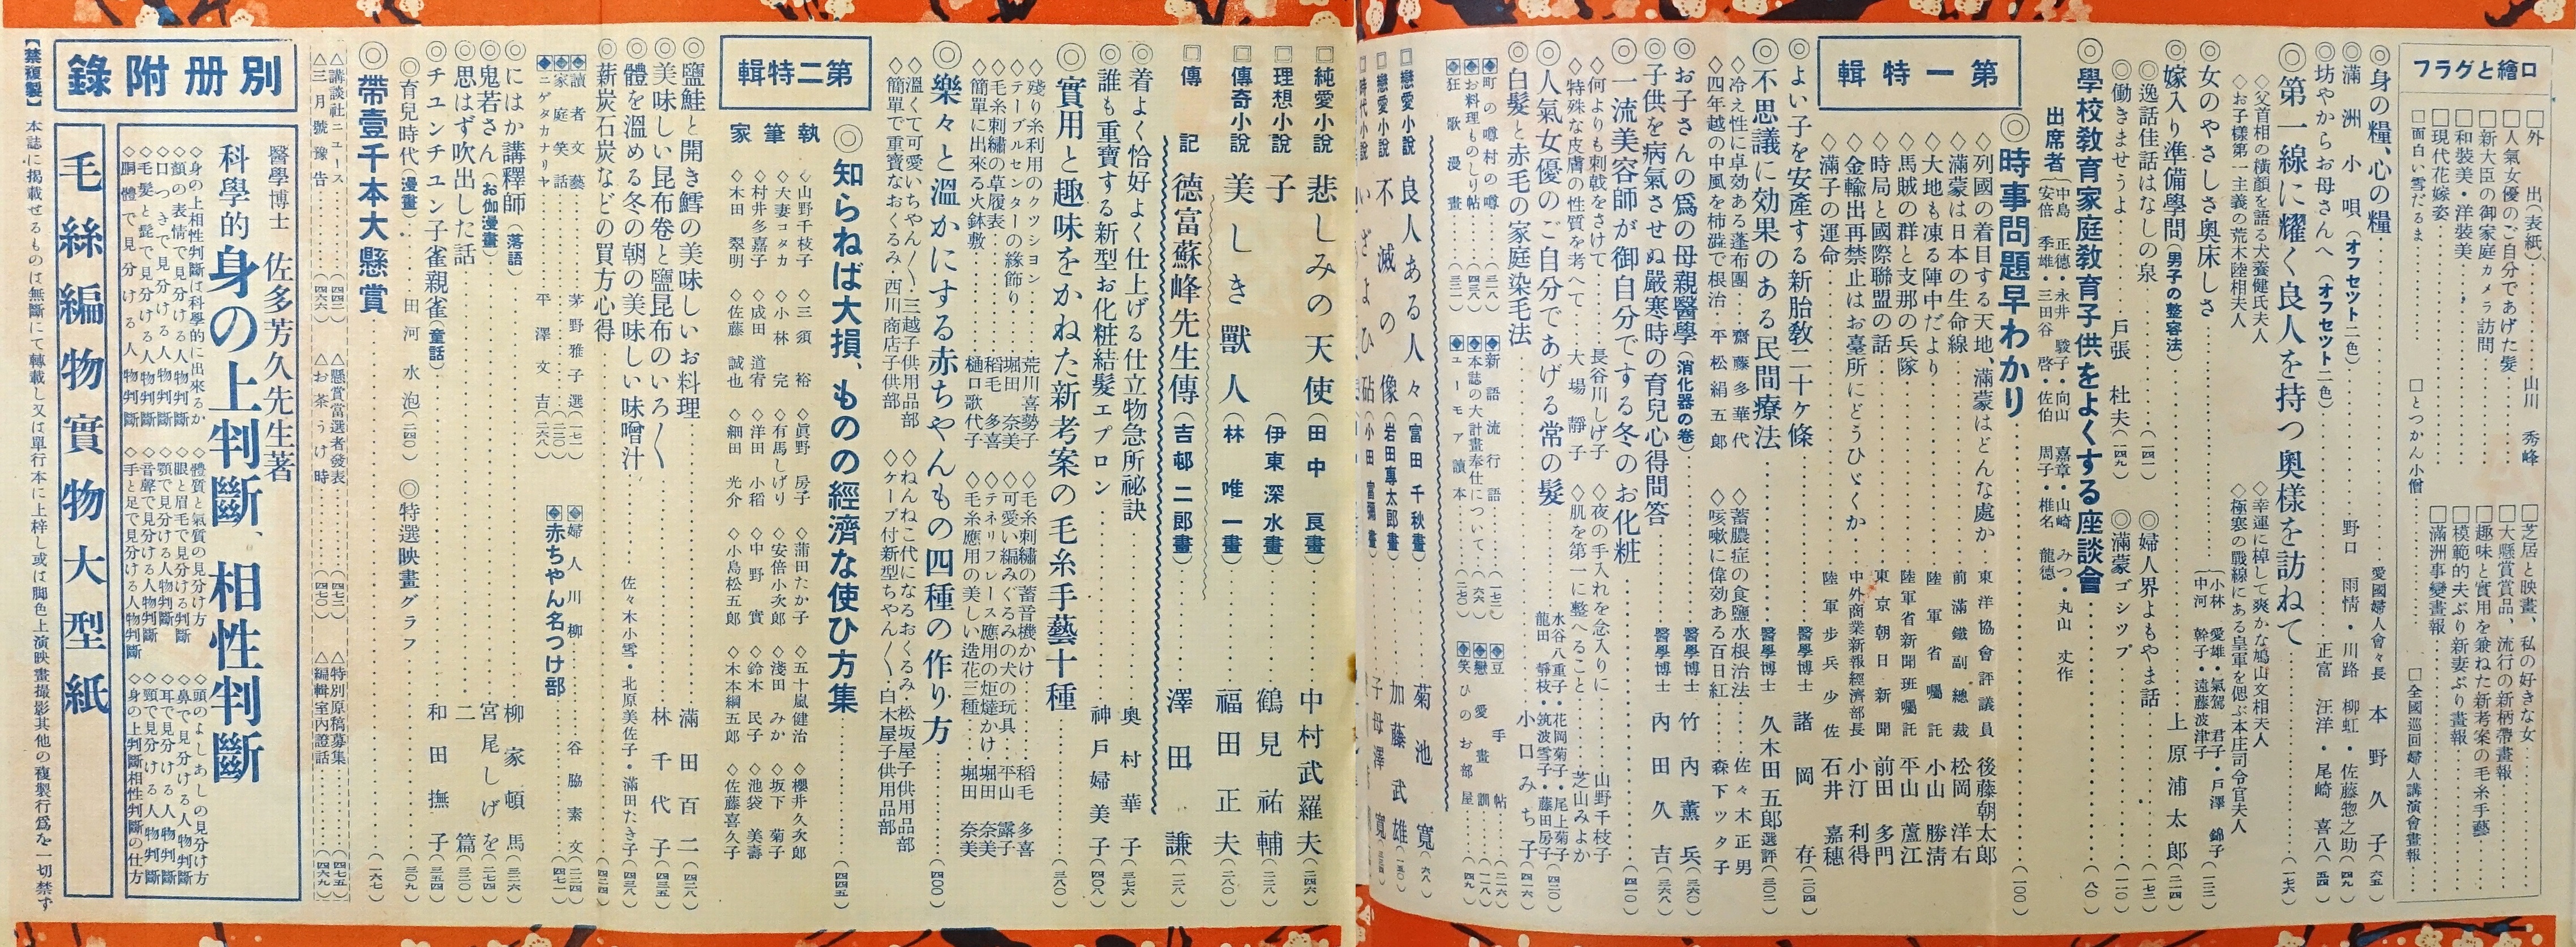 口繪とグラフ
□外出(表紙)……山川秀峰
□人氣女優のご自分であげた髪
□新大臣の御家庭カメラ訪問
□和裝美・洋裝美
□現代花嫁姿
□面白い雪だるま
□とつかん小僧
□芝居と映畫、私の好きな女
□大懸賞賞品、流行の新柄帶畫報
□趣味と實用を兼ねた新考案の毛糸手藝
□模範的夫ぶり新妻ぶり畫報
□滿洲事變畫報
□全國巡回婦人講演會畫報
◎身の糧、心の糧……愛國婦人會々長 本野久子(六五)
◎滿洲小唄(オフセツト二色)……野口雨情・川路柳虹・佐藤惣之助(四九)
◎坊やからお母さんへ(オフセツト二色)……正富汪洋・尾崎喜八(五四)
◎第一線に耀く良人を持つ奧樣を訪ねて……(一七六)
◇父首相の橫顏を語る犬養健氏夫人
◇お子樣第一主義の荒木陸相夫人
◇幸運に棹して爽かな鳩山文相夫人
◇極寒の戰線にある皇軍を偲ぶ本庄司令官夫人
◎女のやさしさ奧床しさ
小林愛雄・氣駕君子・戸澤錦子
中河幹子・遠藤波津子(一二二)
◎嫁入り準備學問(男子の整容法)……上原浦太郎(二一四)
◎逸話佳話はなしの泉……(一四一)
◎婦人界よもやま話……(一七二)
◎働きませうよ……戸張杜夫(一四九)
◎滿蒙ゴシツプ……(一一〇)
◎學校教育家庭教育子供をよくする座談會……(八〇)
出席者
中島正德・永井駿子・向山嘉章・山崎みつ・丸山丈作
安倍季雄・三田谷啓・佐伯周子・椎名龍德
第一特輯
◎時事問題早わかり……(一〇〇)
◇列國の着目する天地、滿蒙はどんな處か……東洋協會評議員 後藤朝太郎
◇滿蒙は日本の生命線……前滿鐵副總裁 松岡洋右
◇大地も凍る陣中だより……陸軍省囑託 小山勝淸
◇馬賊の群と支那の兵隊……陸軍省新聞班囑託 平山蘆江
◇時局と國際聯盟の話……東京朝日新聞 前田多門
◇金輸出再禁止はお臺所にどうひゞくか……中外商業新報經濟部長 小汀利得
◇滿子の運命……陸軍步兵少佐 石井嘉穗
◎よい子を安產する新胎敎二十ケ條……醫學博士 諸岡存(二〇四)
◎不思議に効果のある民間療法……醫學博士 久木田五郎選評(三〇二)
◇冷え性に卓効ある蓬布團……齋藤多華代
◇四年越の中風を柿澁で根治……平松絹五郎
◇蓄膿症の食鹽水根治法……佐々木正男
◇咳嗽に偉効ある百日紅……森下ツタ子
◎お子さんの爲の母親醫學(消化器の卷)……醫學博士 竹內薰兵(三六〇)
◎子供を病氣させぬ嚴寒時の育兒心得問答……醫學博士 內田久吉(三六八)
◎一流美容師が御自分でする冬のお化粧……(四一〇)
◇何よりも刺戟をさけて……長谷川しげ子
◇特殊な皮膚の性質を考へて……大場靜子
◇夜の手入れを念入りに……山野千枝子
◇肌を第一に整へること……芝山みよか
◎人氣女優のご自分であげる常の髪
水谷八重子・花岡菊子・尾上菊子
龍田靜枝・筑波雪子・藤田房子(四二〇)
◎白髪と赤毛の家庭染毛法……小口みち子(四一六)
◆町の噂村の噂……(三一八)
◆お料理ものしり帖……(四三八)
◆狂歌漫畫……(三二一)
◆新語流行語……(一七三)
◆本誌の大計畫奉仕について……(六六)
◆ユーモア讀本……(二七〇)
◆豆手帖……(二一六)
◆戀愛畫訓……(一一八)
◆笑ひのお部屋……(四九)
□戀愛小說 良人ある人々(富田千秋畫)……菊池寬(六八)
□戀愛小說 不滅の像(岩田專太郎畫)……加藤武雄(一五〇)
□時代小說 いざよひ砧(小田富彌畫)……子母澤寬
□純愛小說 悲しみの天使(田中良畫)……中村武羅夫(二四六)
□理想小說 子(伊東深水畫)……鶴見祐輔(二三八)
□傳奇小說 美しき獸人(林唯一畫)……福田正夫(二八〇)
□傳記 德富蘇峰先生傳(吉邨二郎畫)……澤田謙(一三八)
◎着よく恰好よく仕上げる仕立物急所祕訣……奧村華子(三七六)
◎誰も重寶する新型お化粧結髪エプロン……神戸婦美子(四〇八)
◎實用と趣味をかねた新考案の毛糸手藝十種……(三八〇)
◇殘り糸利用のクツシヨン……荒川喜勢子
◇テーブルセンターの緣飾り……堀田奈美
◇毛糸刺繡の草履表……稻毛多喜
◇簡單に出來る火鉢敷……樋口歌代子
◇毛糸刺繡の蓄音機かけ……稻毛多喜
◇可愛い編みぐるみの犬の玩具……平山露子
◇テネリフレース應用の炬燵かけ……堀田奈美
◇毛糸應用の美しい造花三種……堀田奈美
◎樂々と溫かにする赤ちやんもの四種の作り方……(四〇〇)
◇溫くて可愛いちやん〳〵……三越子供用品部
◇簡單で重寶なおくるみ……西川商店子供部
◇ねんねこ代になるおくるみ……松坂屋子供用品部
◇ケープ付新型ちやん〳〵……白木屋子供用品部
第二特輯
◎知らねば大損、ものの經濟な使ひ方集……(四四五)
執筆家
◇山野千枝子 ◇三須裕 ◇眞野房子 ◇蒲田たか子 ◇五十嵐健治 ◇櫻井久次郎
◇大妻コタカ ◇小林完 ◇有馬しげり ◇安倍小次郎 ◇淺田みか ◇坂下菊子
◇村井多嘉子 ◇成田道宥 ◇洋田小稻 ◇中野實 ◇鈴木民子 ◇池袋美壽
◇木田翠明 ◇佐藤誠也 ◇細田光介 ◇小島松五郎 ◇木本綱五郎 ◇佐藤喜久子
◎鹽鮭と開き鱈の美味しいお料理……滿田百二(四二八)
◎美味しい昆布卷と鹽昆布のいろ〳〵……林千代子(四三五)
◎體を溫める冬の朝の美味しい味噌汁……佐々木小雪・北原美佐子・滿田たき子(四三八)
◎薪炭石炭などの買方心得……(四二四)
◆讀者文藝……茅野雅子選(一七一)
◆家庭笑話……(三二〇)
◆ニゲタカナリヤ……平澤文吉(二六八)
◆婦人川柳……谷脇素文(二三四)
◆赤ちやん名つけ部……(四七一)
◎にはか講釋師(落語)……柳家頓馬(三二六)
◎鬼若さん(お伽漫畫)……宮尾しげを(二七四)
◎思はず吹出した話……二篇(三二〇)
◎チユンチユン子雀親雀(童話)……和田撫子(三五四)
◎育兒時代(漫畫)……田河水泡(二四〇)
◎特選映畫グラフ……(三〇九)
◎帶壹千本大懸賞……(一六七)
△講談社ニユース……(四四三)
△三月號豫告……(四六六)
△懸賞當選者發表……(四七三)
△お茶うけ時……(四七〇)
△特別原稿募集……(四七五)
△編輯室內證話……(四六九)
別册附錄
醫學博士 佐多芳久先生著
科學的身の上判斷、相性判斷
◇身の上相性判斷は科學的に出來るか
◇顏の表情で見分ける人物判斷
◇口つきで見分ける人物判斷
◇毛髪と髭で見分ける人物判斷
◇胴體で見分ける人物判斷
◇體質と氣質の見分け方
◇眼と眉毛で見分ける判斷
◇顎で見分ける人物判斷
◇音聲で見分ける人物判斷
◇手と足で見分ける人物判斷
◇頭のよしあしの見分け方
◇鼻で見分ける人物判斷
◇耳で見分ける人物判斷
◇頸で見分ける人物判斷
◇身の上判斷相性判斷の仕方
毛絲編物實物大型紙
【禁複製】本誌に揭載せるものは無斷にて轉載し又は單行本に上梓し或は脚色上演映畫撮影其他の複製行爲を一切禁ず